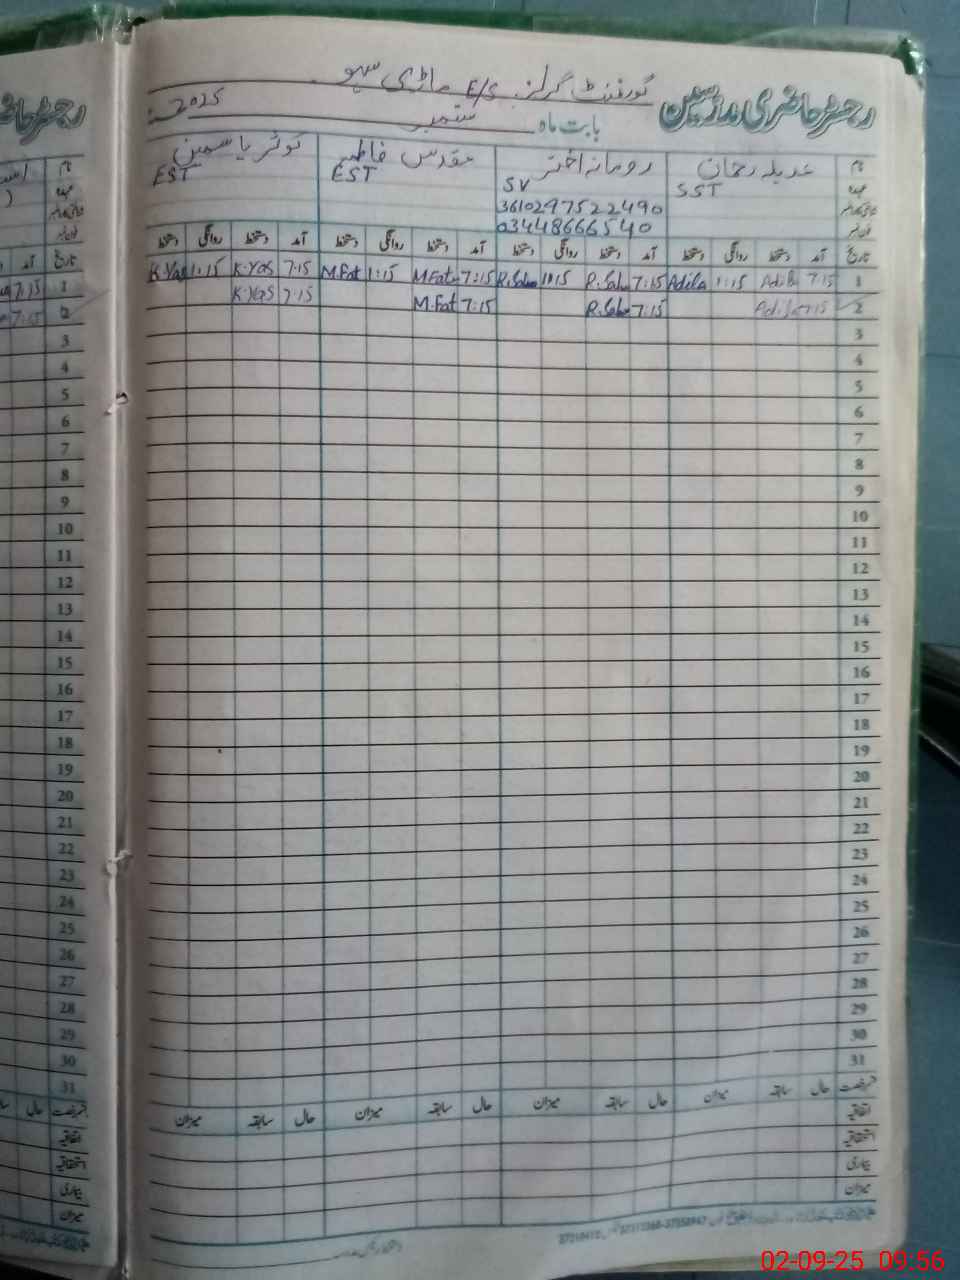 رجسٹر حاضری مدرسین گورنمنٹ گرلز E/S ماڑی سہو
بابت ماہ ستمبر 2025
نام عدیلہ رحمان رومانہ اختر مقدس فاطمہ کوثر یاسمین
عہدہ SST SV EST EST
3610297522490
فون نمبر 03448666540
تاریخ آمد دستخط روانگی دستخط آمد دستخط روانگی دستخط آمد دستخط روانگی دستخط آمد دستخط روانگی دستخط
1 7:15 Adila 1:15 Adila 7:15 1:15 7:15 M.Fat 1:15 M.Fat 7:15 K.Yas 1:15 K.Yas
2 7:15 7:15 M.Fat 7:15 K.Yas
3
4
5
6
7
8
9
10
11
12
13
14
15
16
17
18
19
20
21
22
23
24
25
26
27
28
29
30
31
حال سابقہ میزان حال سابقہ میزان حال سابقہ میزان حال سابقہ میزان
اتفاقیہ
استحقاقیہ
بیماری
میزان
7:15
1
7:15
2
3
4
5
6
7
8
9
10
11
12
13
14
15
16
17
18
19
20
21
22
23
24
25
26
27
28
29
30
31
حال
اتفاقیہ
استحقاقیہ
بیماری
میزان
02-09-25 09:56